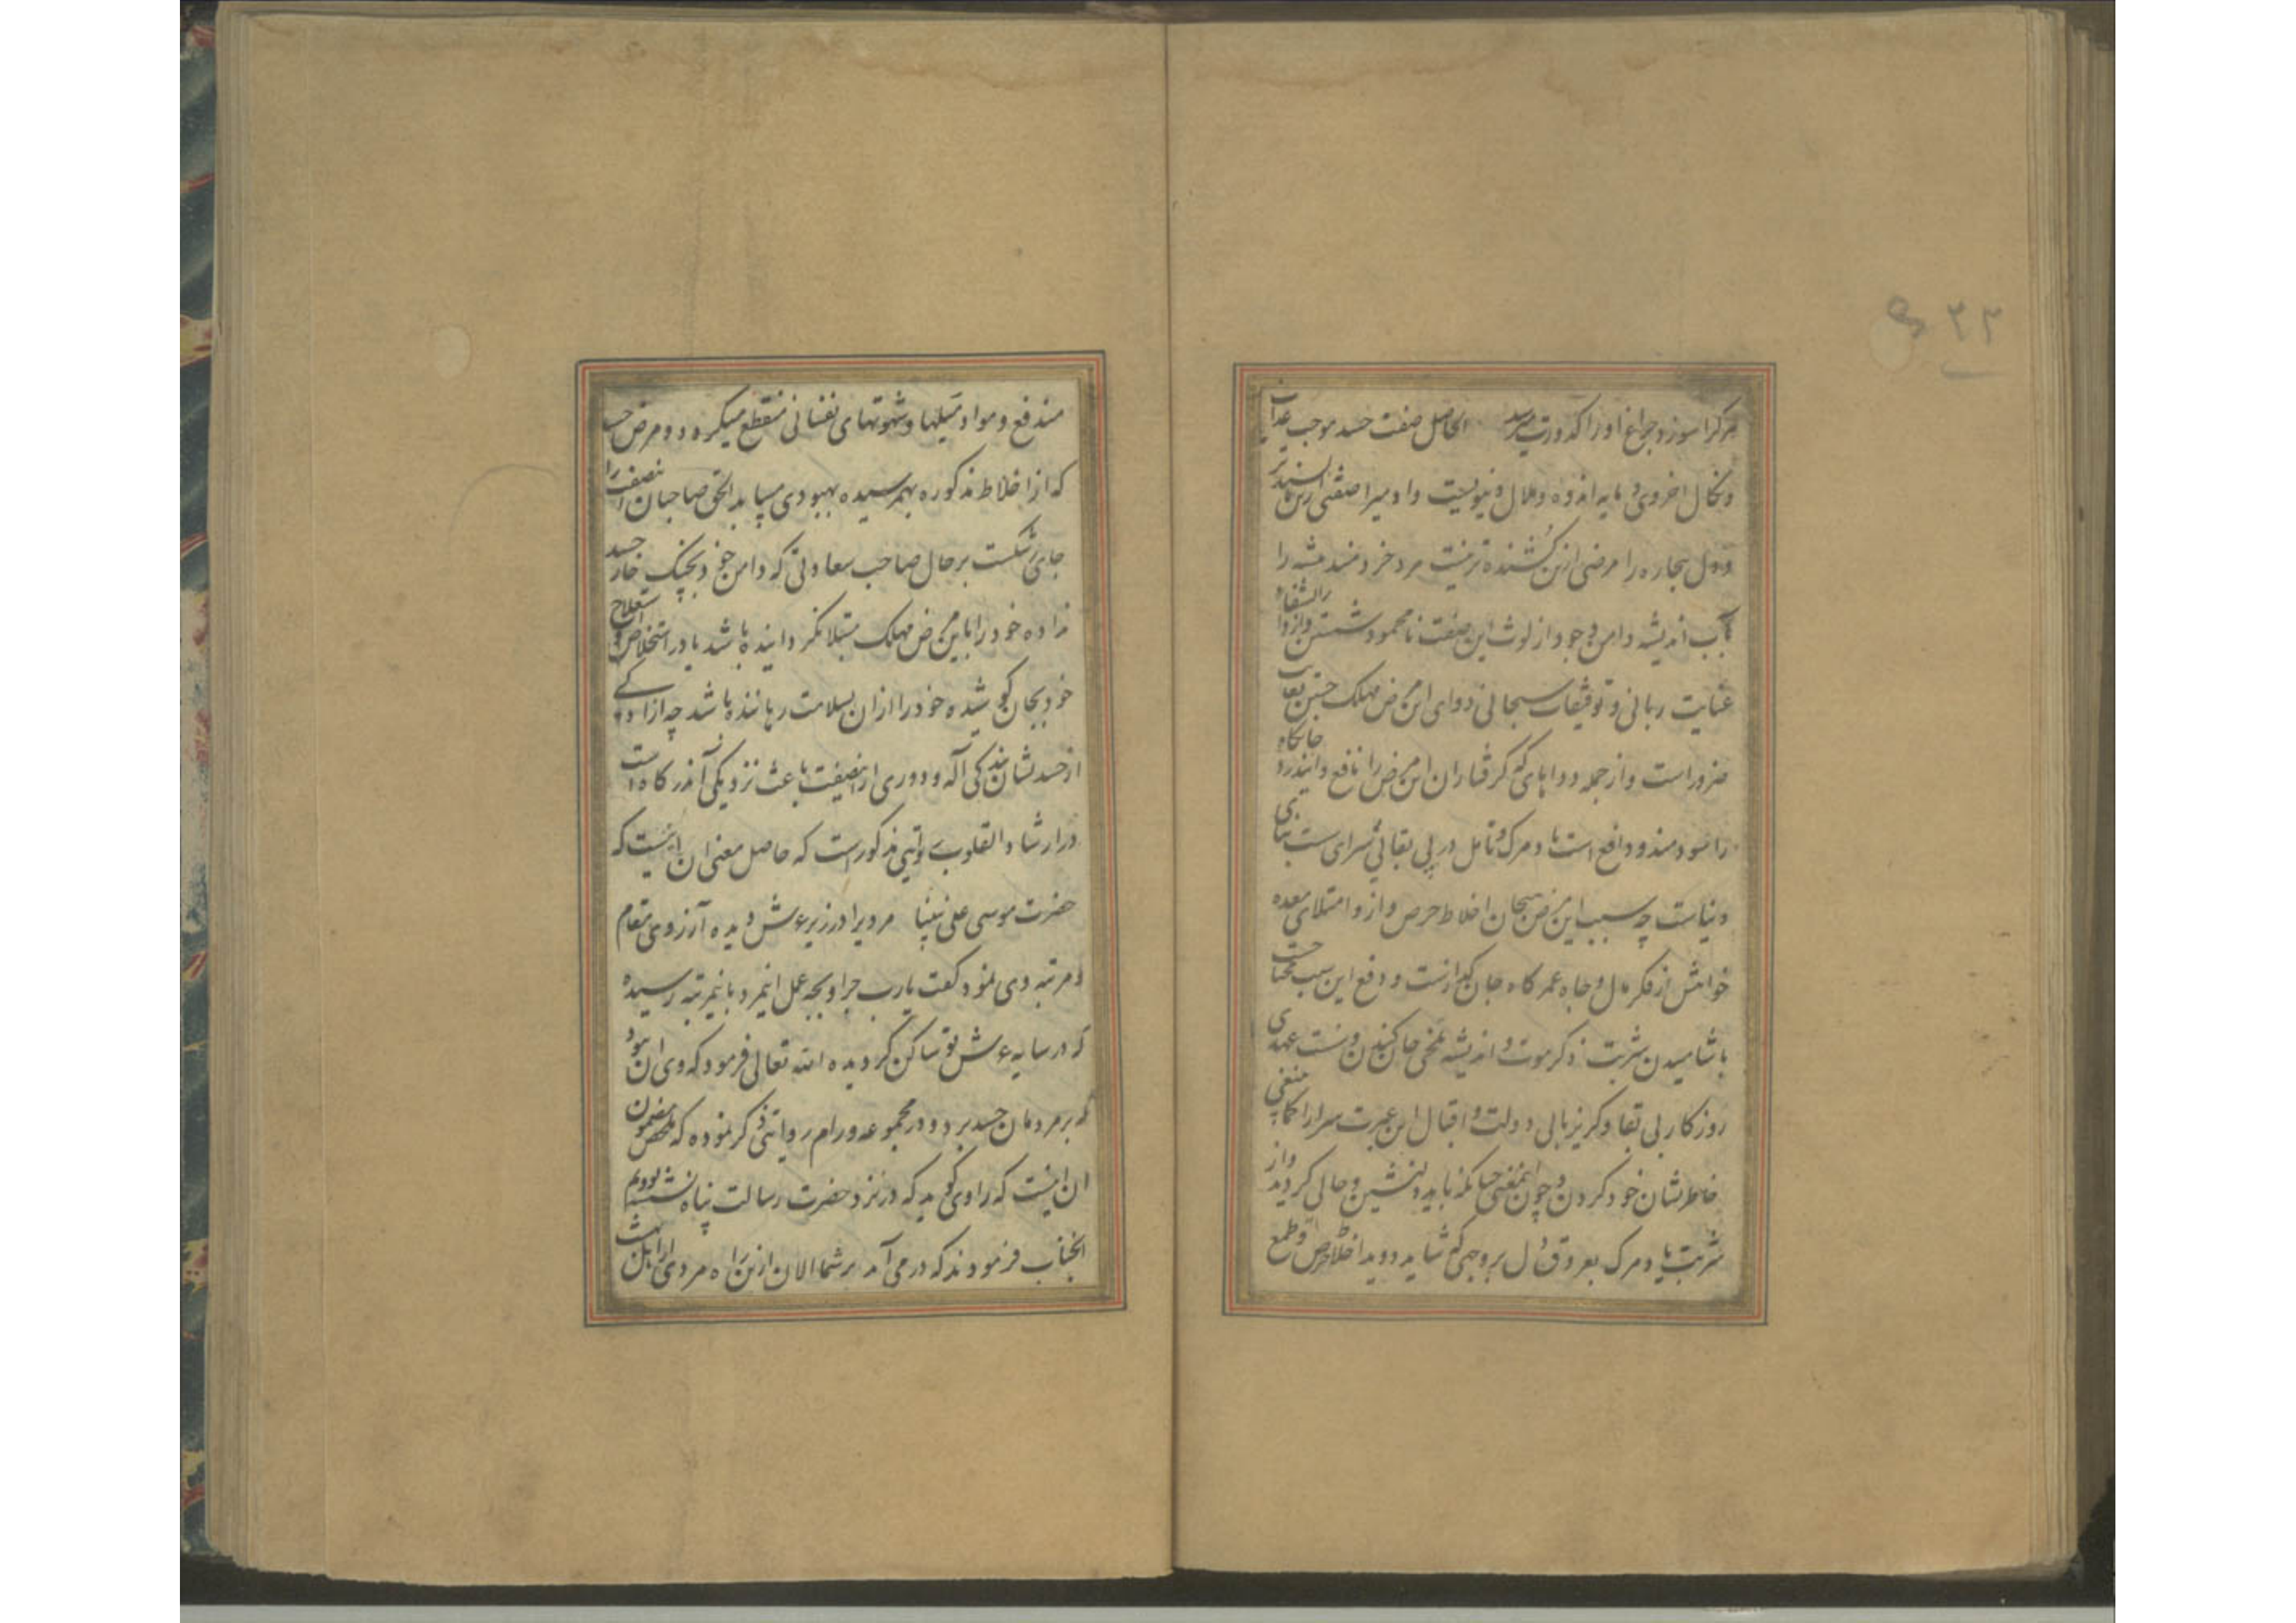 ۳۲
هرکرا سوزد چراغ او را کدورت میرسد الحاصل صفت حسد موجب عذاب
ونکال اخروی و مایه اندوه و ملال دنیویست و اولیرا صفتی ازین ناپسندتر
و دل بیچاره را مرضی ازین کشنده تر نیست مرد خردمند همیشه را
بآب اندیشه دامن وجود از لوث این صفت نامحمود شستن و از دارالشفاء
عنایت ربانی و توفیقات سبحانی دوای این مرض مهلک جستن بغایت
ضرور است و از جمله دواهای که گرفتاران این مرض را نافع و این درد جانکاه
را سودمند و دافع است یاد مرگ و تامل در بی بقائی سرای سست بنای
دنیاست چه سبب این مرض هیجان اخلاط حرص و آز و امتلای معده
خواهش از فکر مال و جاه عمرکاه جان گدازست و دفع این سبب محتاجست
باشامیدن شربت ذکر موت و اندیشه تلخی جان کندن و سست عهدی
روزگار بی بقا و گریزپایی دولت و اقبال این عبرت سرا را کماینبغی
خاطرنشان خود کردن و چون اینمعنی چنانکه باید دلنشین و حالی گردید و از
شربت یاد مرگ بعروق دل بروجهی که شاید دوید اخلاط حرص و طمع
مندفع و مواد میلها و شهوتهای نفسانی منقطع میگردد و مرض حسد
که از اخلاط مذکوره بهمرسیده بهبودی مییابد الحق صاحبان انصفت را
جای رشکست بر حال صاحب سعادتی که دامن خود بچنگ خار حسد
نداده خود را باین مرض مهلک مبتلا نگردانیده باشد یا در استخلاص و استعلاج
خود بجان کوشیده خود را ازان بسلامت رهاننده باشد چه آزادگی
از حسد نشان بندگی اله و دوری ازینصفت باعث نزدیکی آندرگاه است
در ارشاد القلوب روایتی مذکور است که حاصل معنی آن اینست که
حضرت موسی علی نبینا مردیرا در زیر عرش دیده آرزوی مقام
و مرتبه وی نمود گفت یارب چرا و بچه عمل اینمرد باینمرتبه رسیده
که در سایه عرش تو ساکن گردیده الله تعالی فرمود که وی آن بود
که بر مردمان حسد نبرد و در مجموعه ورام روایتی ذکر نموده که ملخص مضمون
آن اینست که راوی گوید که در نزد حضرت رسالت پناه نشسته بودیم
انجناب فرمودند که درمی آید بر شما الان ازین راه مردی از اهل بهشت